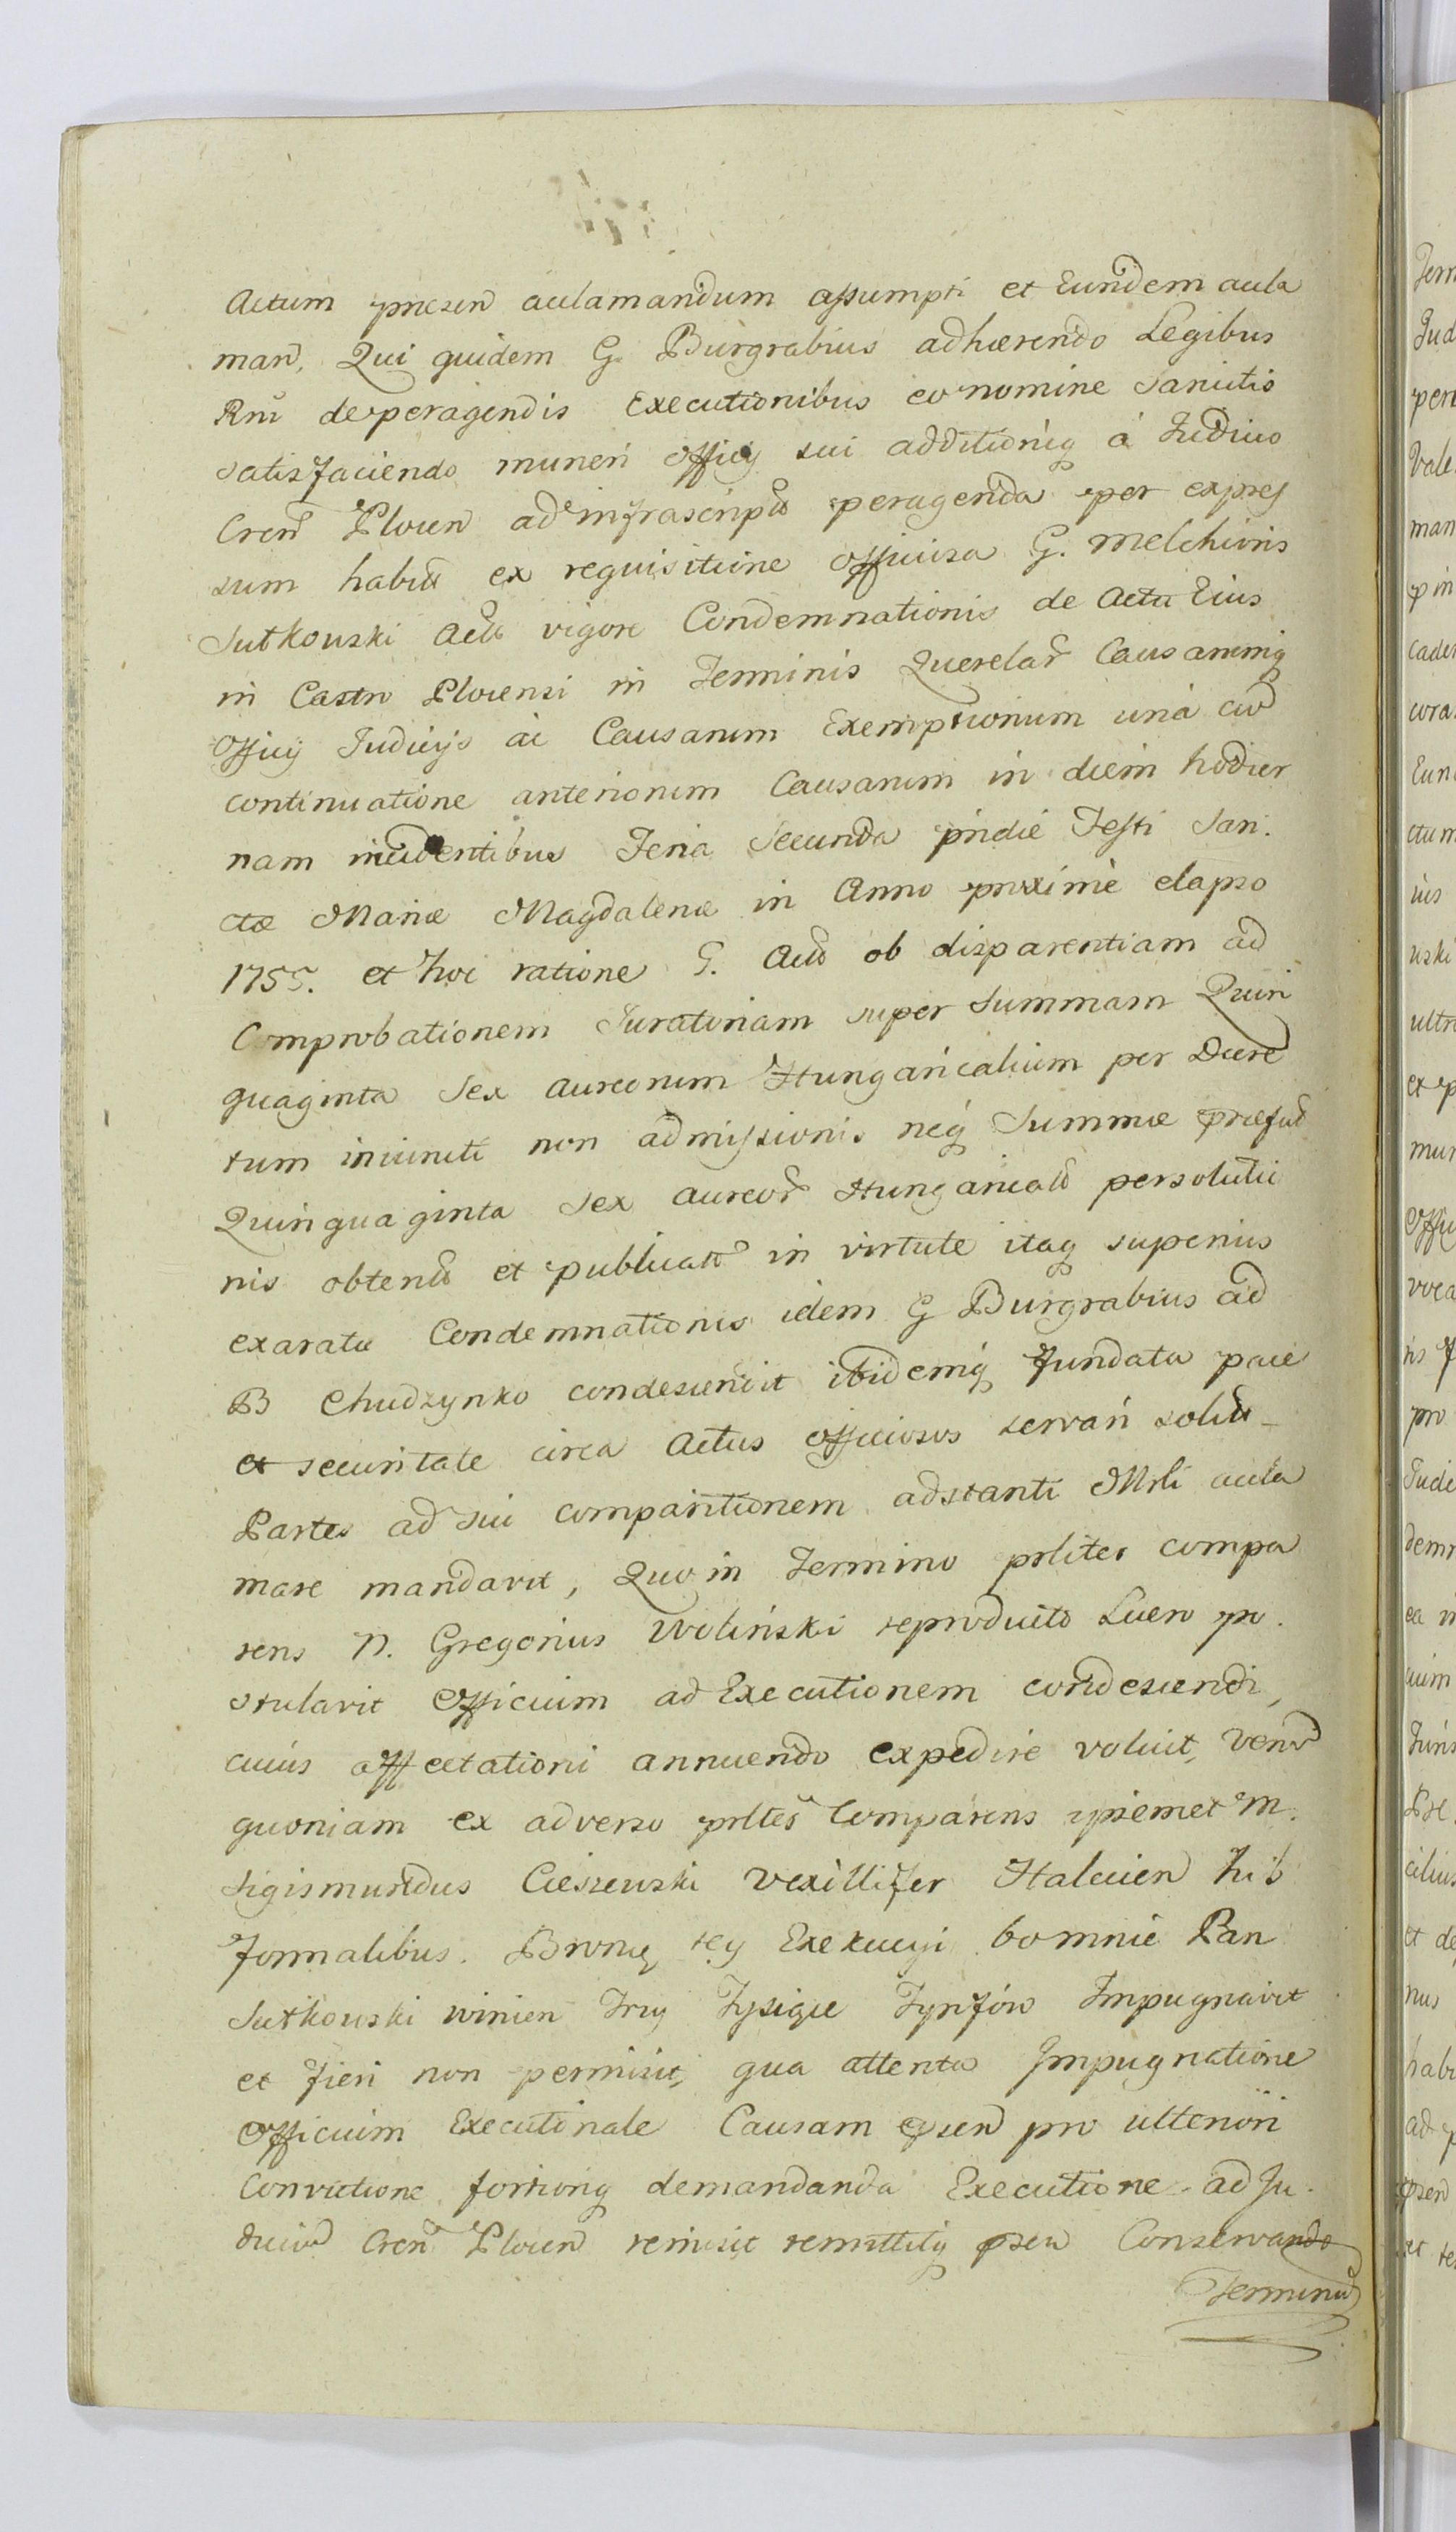 Actum praesen acclamandum assumpti et Eundem accla
man, Qui quidem G. Burgrabius adhaerendo Legibus
Rni de peragendis Executionibus eo nomine Sancitis
satisfaciendo muneri officij sui additioniq á Judicio
Cren Plocen ad infrascripta peragenda per expres
sum habita ex requisitione officiosa G. Melchioris
Sutkowski Actis vigore Condemnationis de Actu Eius
in Castro Plocensi in Terminis Querelar Causarumq
Officij Judicijs ac Causarum Exemptionum una cum
continuatione anteriorum Causarum in diem hodier
nam incidentibus Feria Secunda pridie Festi San.
ctae Mariae Magdalenae in Anno proximè elapso
1755. et hoc ratione G. Actis ob disparentiam ad
Comprobationem Juratoriam super Summam Quin
quaginta Sex Aureorum Hungaricalium per Decre
tum iniuncti non admissionis neq Summae praefat
Quinquaginta Sex Aureor Hungarical persolutio
nis obtent et publicat in virtute itaq superius
exaratae Condemnationis idem G Burgrabius ad
B Chudzynko condescendit ibidemq fundata pace
et securitate circa Actus officiosos servari solita
Partes ad sui comparitionem adstanti Mrli accla
mare mandavit, Quo in Termino prliter compa
rens N. Gregorius Woliński reproducto Lucro po.
stularit Officium ad Executionem condescendi,
cuius affectationi annuendo expedire voluit, Verum
quoniam ex adverso prltes Comparens ipsemet M.
Sigismundus Cieszewski Vexillifer Halicien his
formalibus. Bronię tey Exekucyi bo mnie Pan
Sutkowski winien Trzy Tysiące Tynfów Impugnavit
et fieri non permisit, qua attenta Impugnatione
Officium Executionale Causam praesen pro ulteriori
Convictione fortioriq demandanda Executione ad Ju.
dicium Cren Plocen remisit remittitq praesen Conservando
Terminum